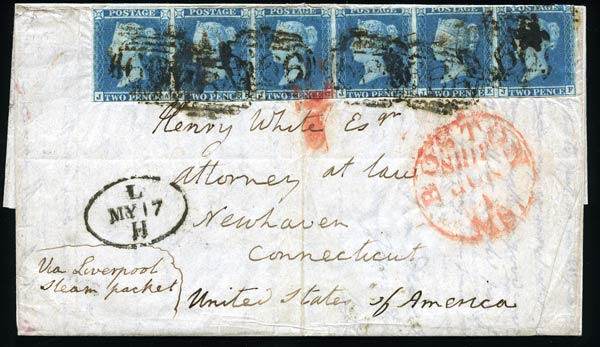 POSTAGE POSTAGE POSTAGE POSTAGE POSTAGE POSTAGE
TWO PENCE TWO PENCE TWO PENCE TWO PENCE TWO PENCE TWO PENCE
Henry White Esqr
Attorney at law
Newhaven
Connecticut
United States of America
Via Liverpool
Steam packet
L
MY 17
H
BOSTON
SHIP
JUN
MS